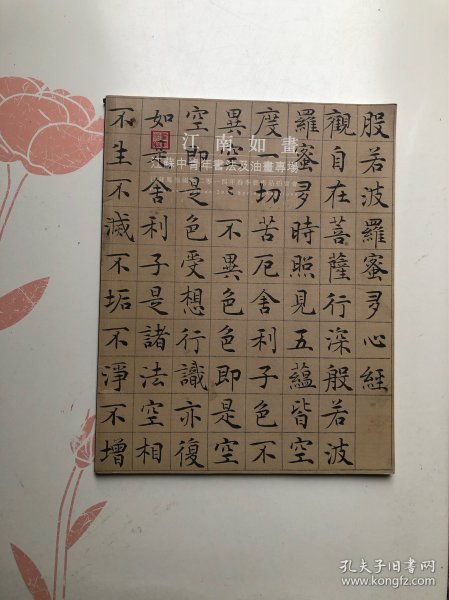 江南如畫
江蘇中青年書法及油畫專場
般若波羅蜜多心經
觀自在菩薩行深般若波
羅蜜多時照見五蘊皆空
度一切苦厄舍利子色不
異空〻不異色色即是空
空即是色受想行識亦復
如是舍利子是諸法空相
不生不滅不垢不淨不增
孔夫子旧书网
www.kongfz.com